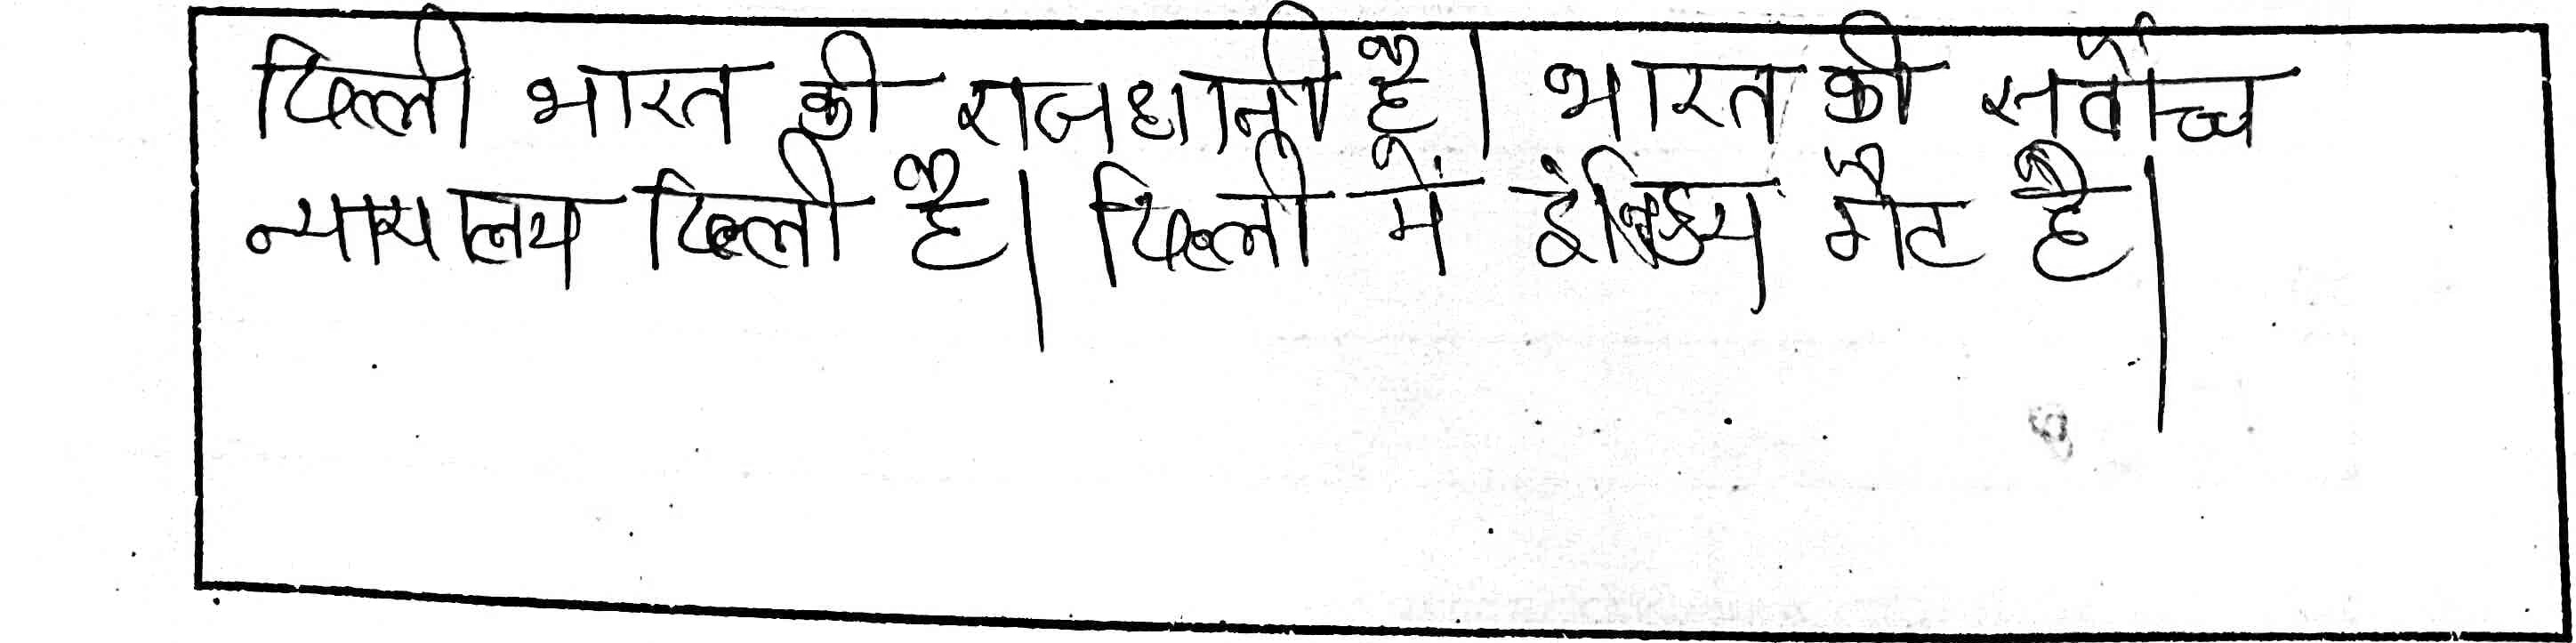 दिल्ली भारत की राजधानी है। भारत की सर्वोच्च
न्यायालय दिल्ली है। दिल्ली में इंडिया गैट है।